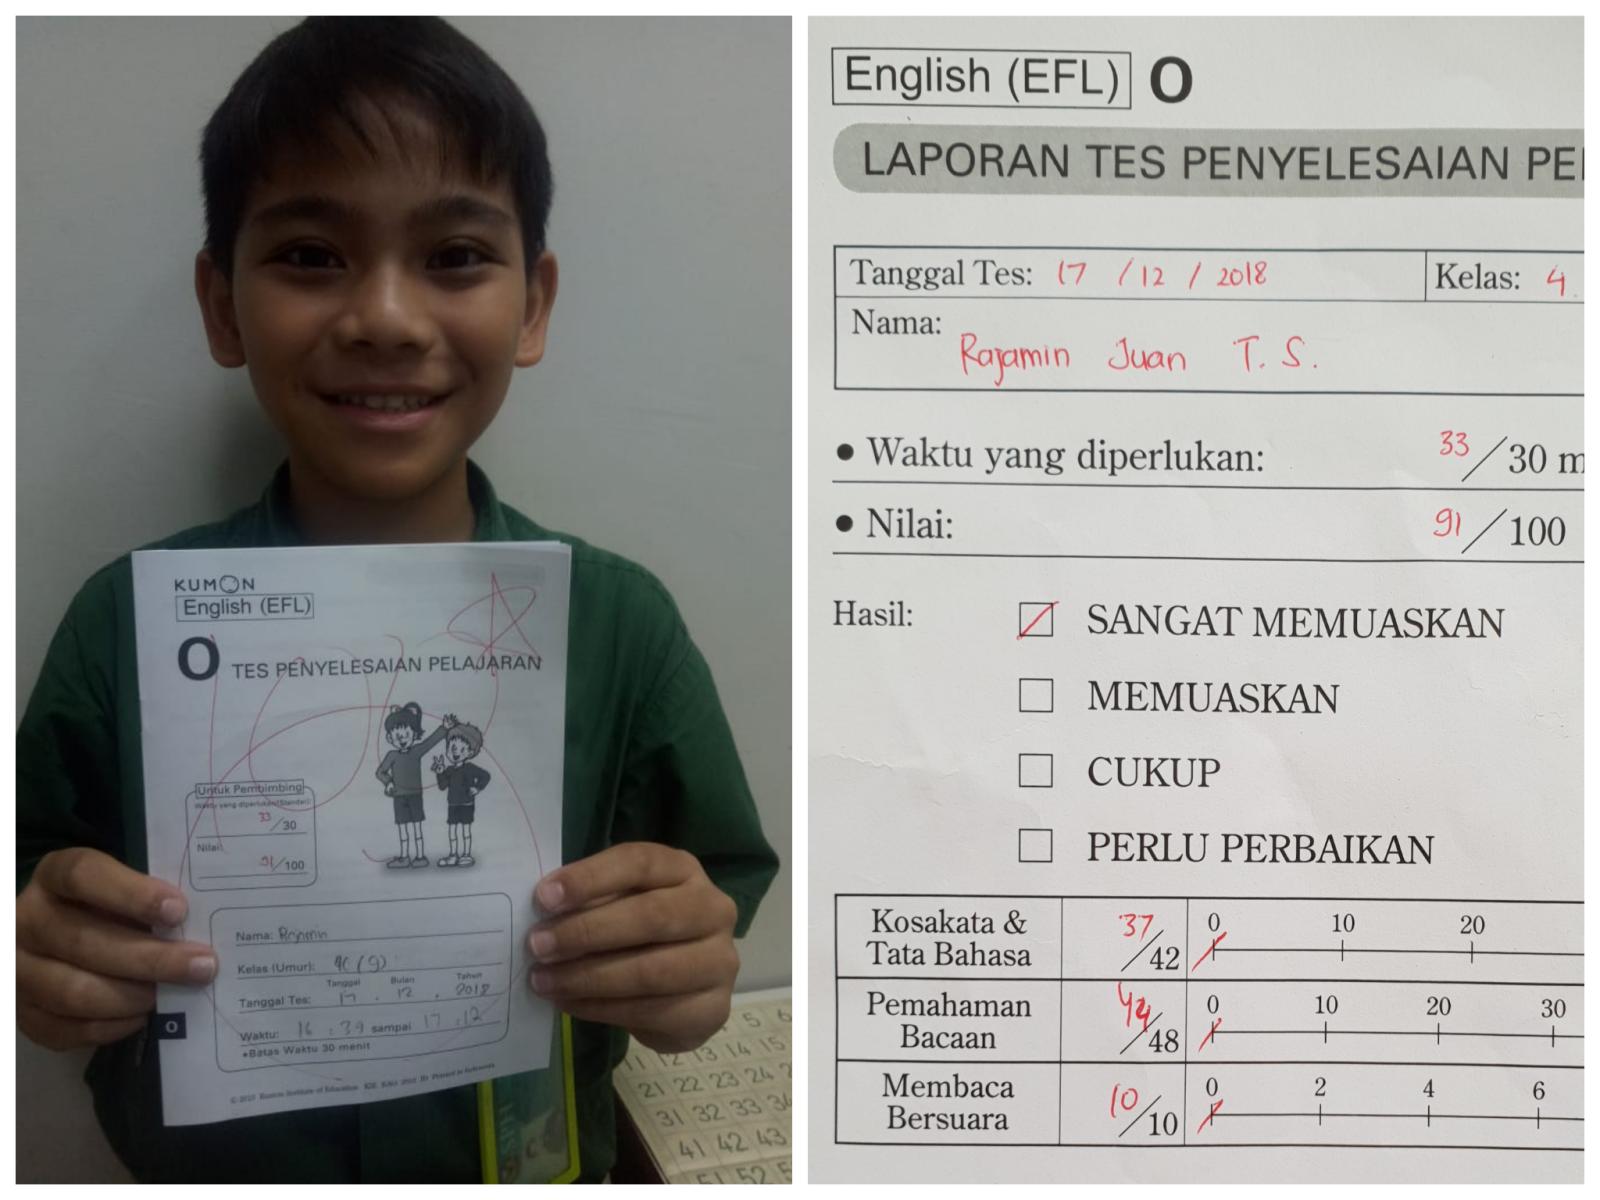 KUMON
English (EFL)
O TES PENYELESAIAN PELAJARAN
Untuk Pembimbing
Waktu yang diperlukan(Standar):
33/30
Nilai:
91/100
Nama: Rajamin
Kelas (Umur): 4C (9)
Tanggal Bulan Tahun
Tanggal Tes: 17 . 12 . 2018
Waktu: 16 : 39 sampai 17 : 12
•Batas Waktu 30 menit
O
© 2010 Kumon Institute of Education
5 6
11 12 13 14 15
21 22 23 24
31 32 33 34
41 42 43
51 52
English (EFL) O
LAPORAN TES PENYELESAIAN PE
Tanggal Tes: 17 / 12 / 2018 Kelas: 4
Nama:
Rajamin Juan T. S.
• Waktu yang diperlukan: 33/30 m
• Nilai: 91/100
Hasil: SANGAT MEMUASKAN
MEMUASKAN
CUKUP
PERLU PERBAIKAN
Kosakata & Tata Bahasa 37/42 0 10 20
Pemahaman Bacaan 44/48 0 10 20 30
Membaca Bersuara 10/10 0 2 4 6